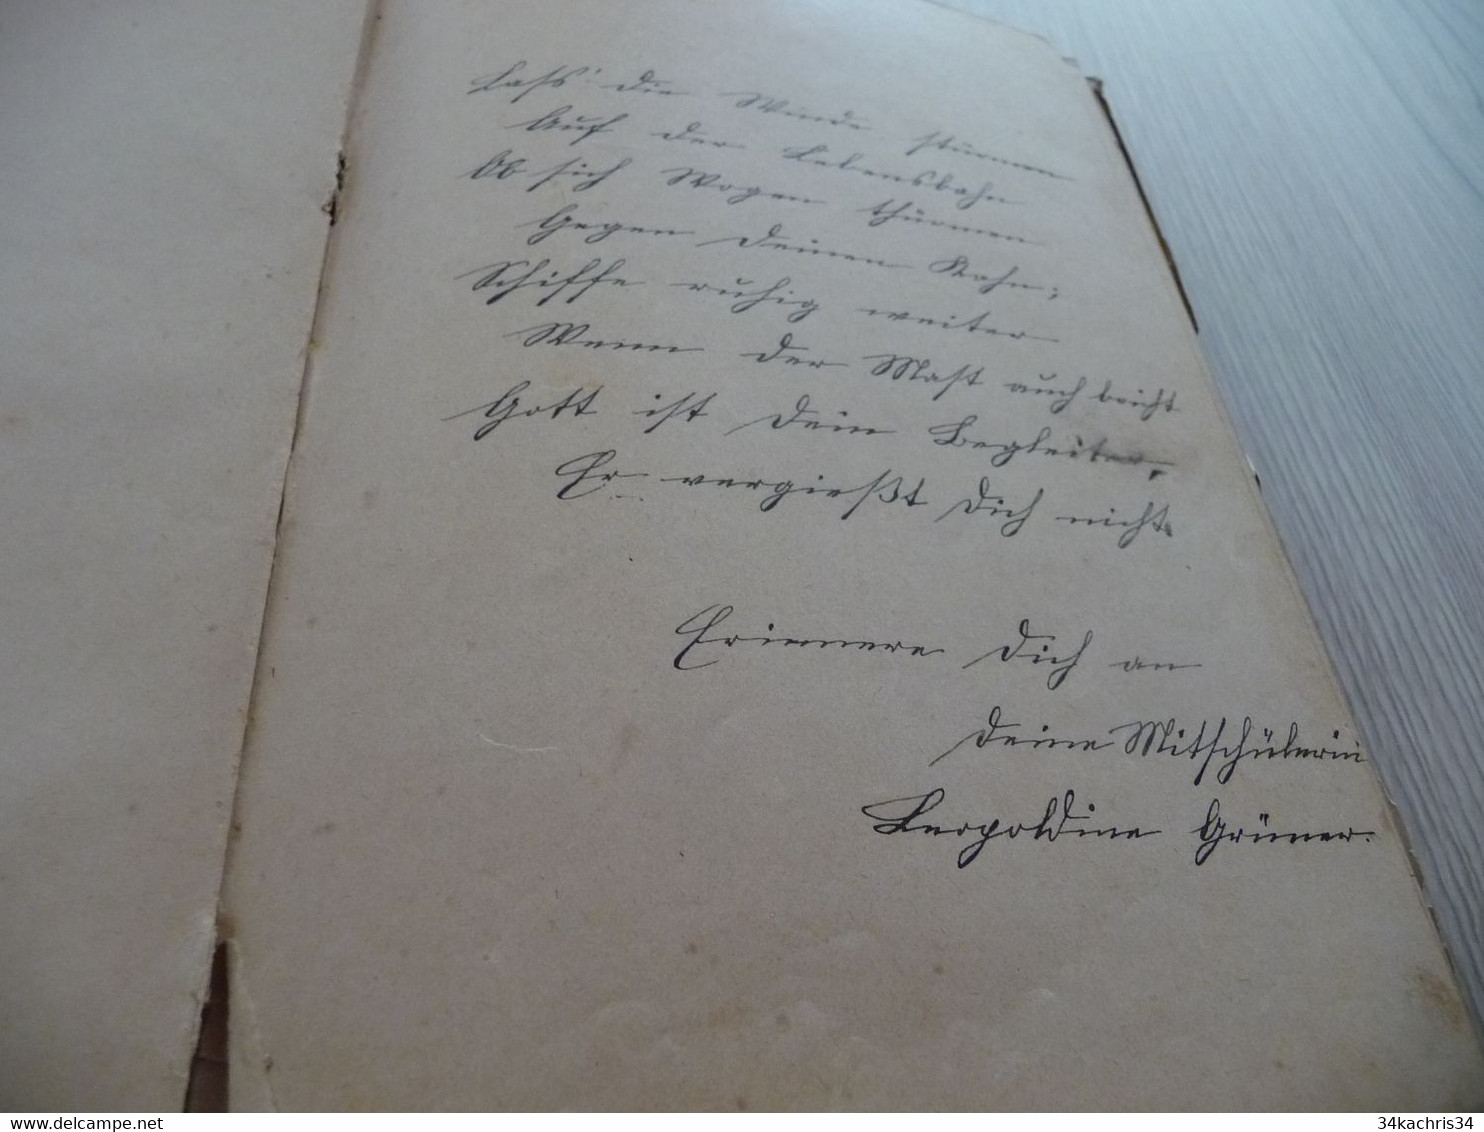 Lass' die Winde stürmen
Auf der Lebensbahn
Ob sich Wogen thürmen
Gegen Deinen Kahn;
Schiffe ruhig weiter
Wenn der Mast auch bricht
Gott ist Dein Begleiter,
Er vergießt Dich nicht.
Erinnere Dich an
Deine Mitschülerin
Leopoldine Grüner.
34kachris34
www.delcampe.net
34kachris34